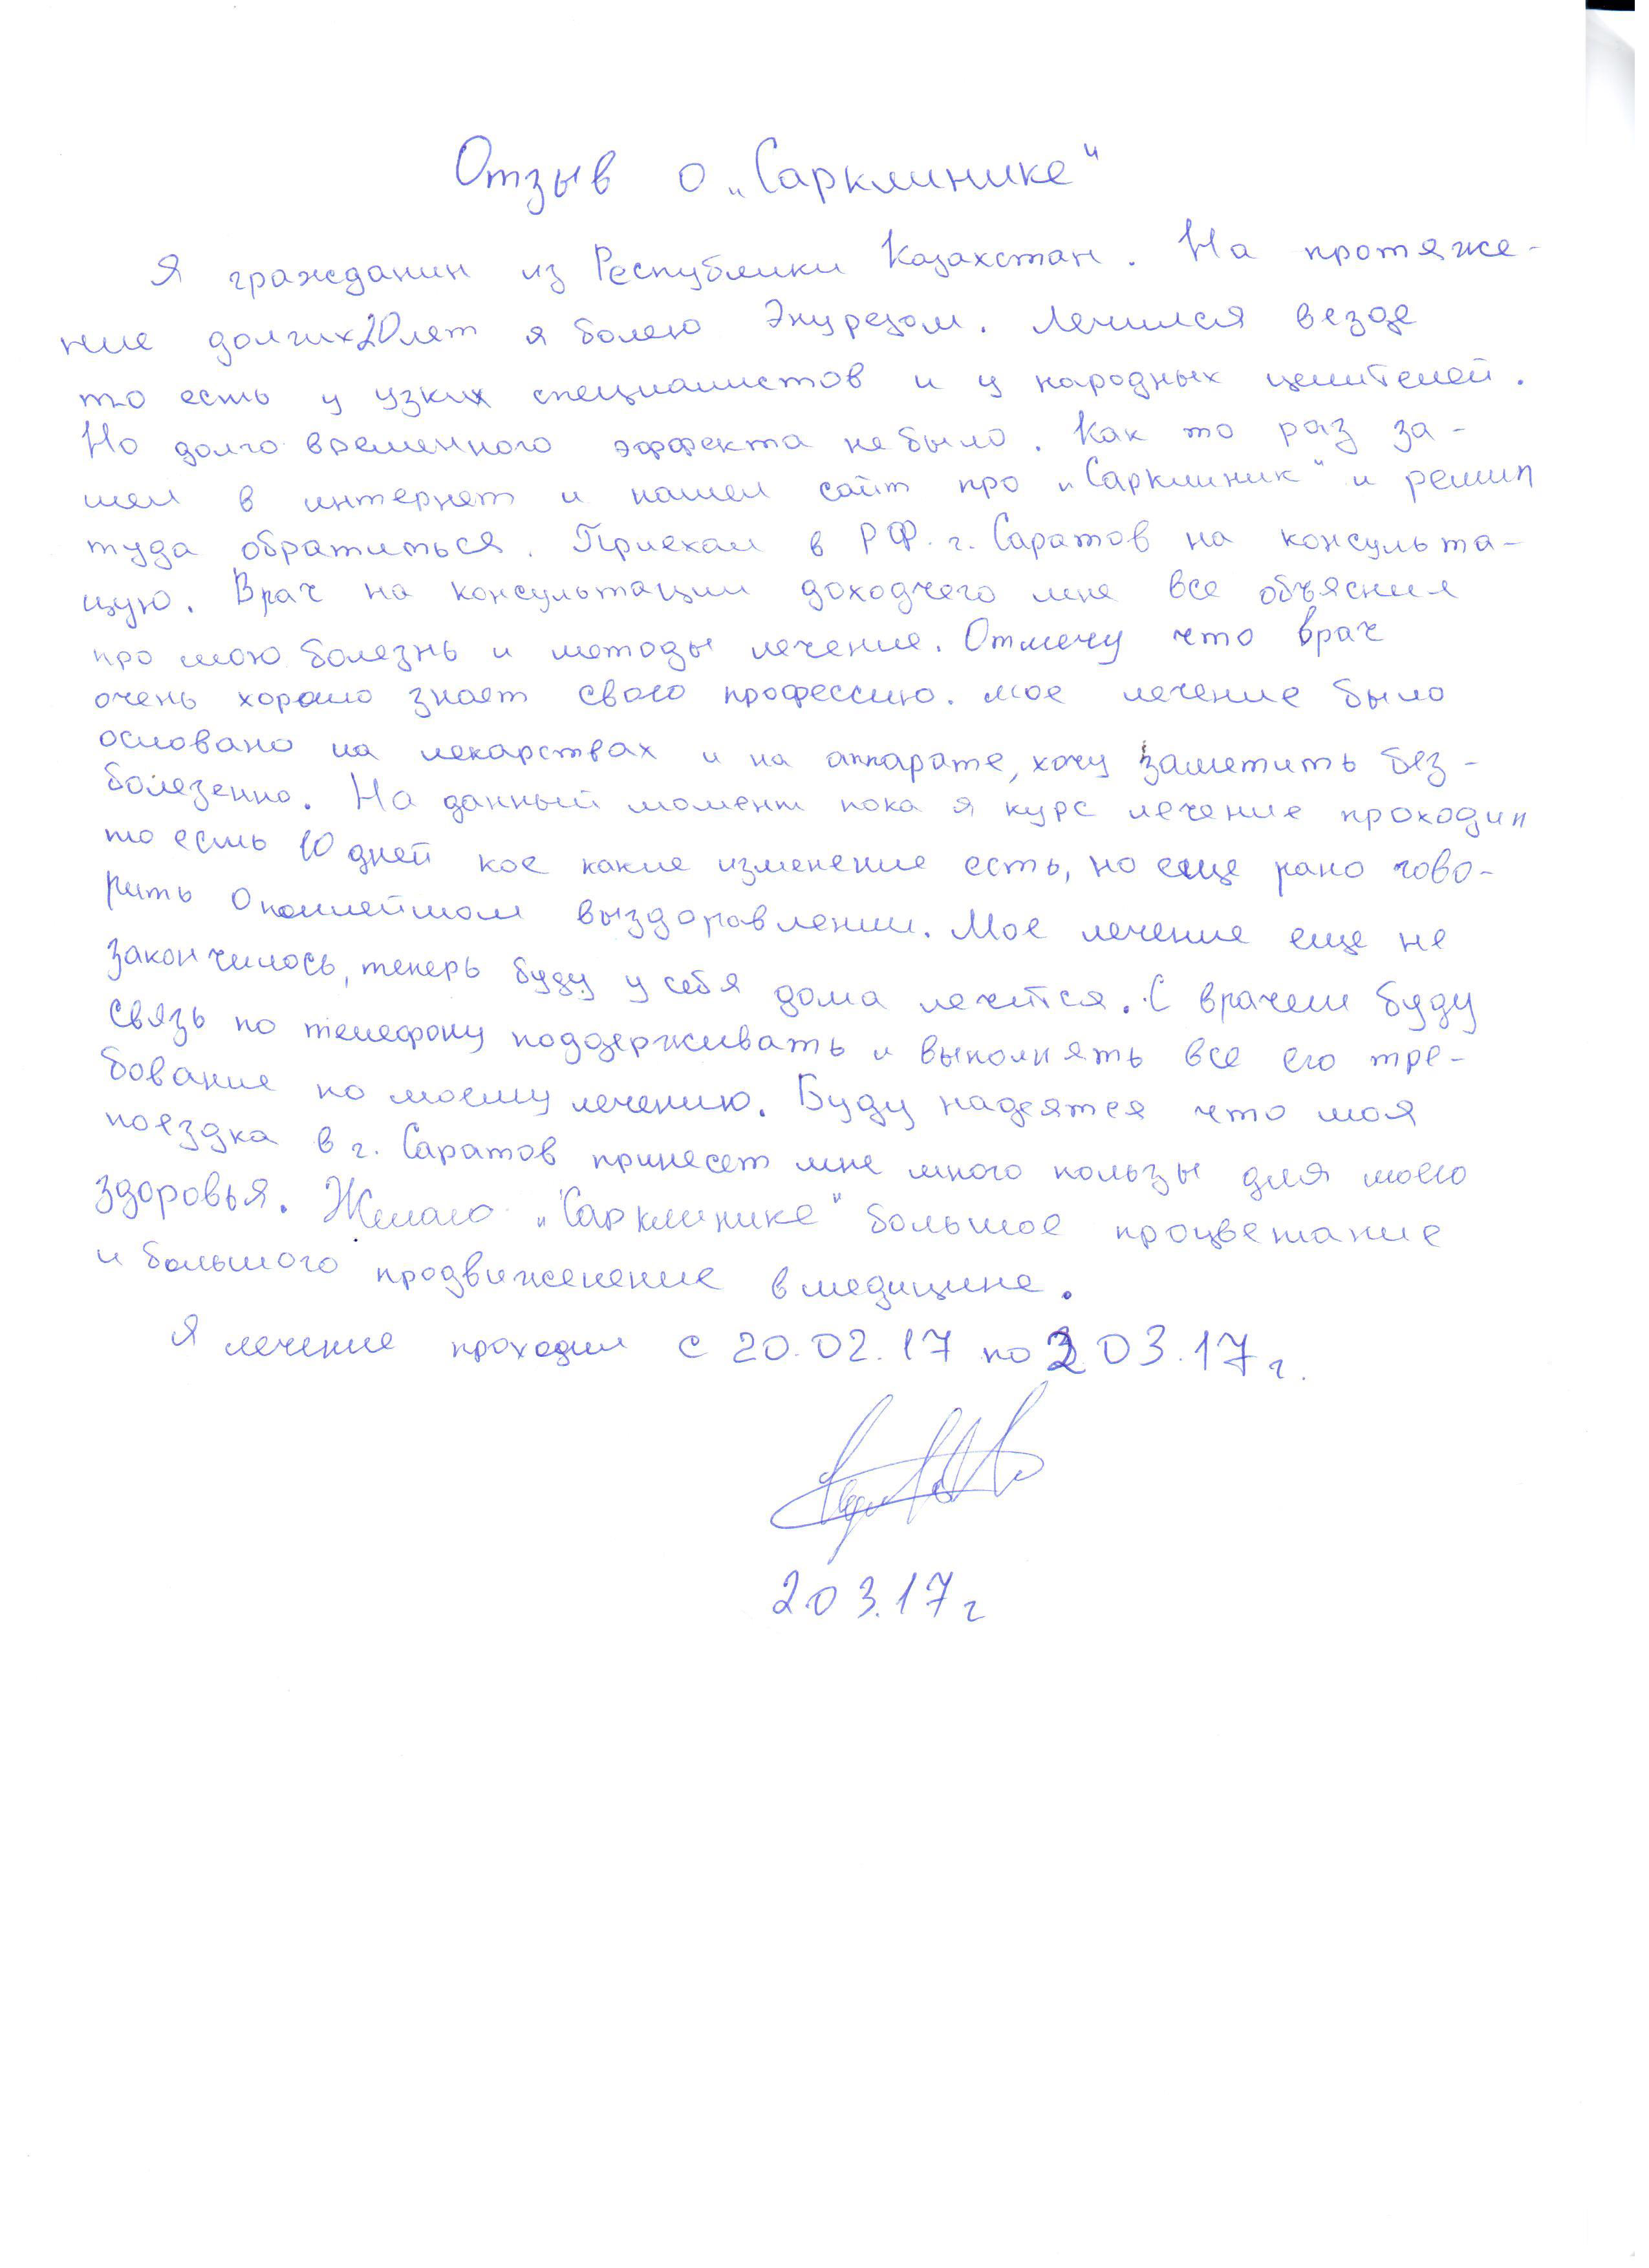 Отзыв о „Саркlинике"
Я гражданин из Республики Казахстан. На протяже-
ние долгих 20 лет я болею Энурезом. Лечился везде
то есть у узких специалистов и у народных целителей.
Но долго временного эффекта не было. Как то раз за-
шел в интернет и нашел сайт про „Саркlиник" и решил
туда обратиться. Приехал в РФ. г. Саратов на консульта-
цию. Врач на консультации доходчего мне все объяснил
про мою болезнь и методы лечение. Отмечу что врач
очень хорошо знает свою профессию. Мое лечение было
основано на лекарствах и на аппарате, хочу заметить без-
болезенно. На данный момент пока я курс лечение проходил
то есть 10 дней кое какие изменение есть, но еще рано гово-
рить о выздоровлении. Мое лечение еще не
закончилось, теперь буду у себя дома лечится. С врачем буду
связь по телефону поддерживать и выполнять все его тре-
бование по моему лечению. Буду надеятся что моя
поездка в г. Саратов принесет мне много пользы для моего
здоровья. Желаю „Саркlинике" большое процветание
и большого продвиженение в медицине.
Я лечение проходил с 20.02.17 по 2.03.17 г.
2.03.17 г